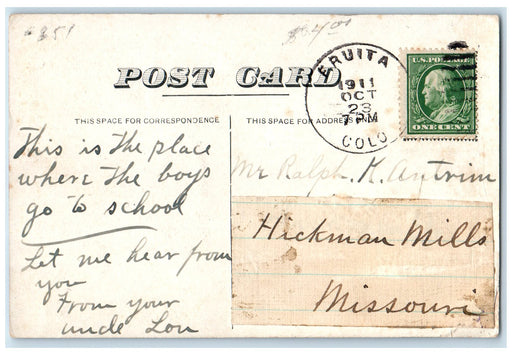 $4.00
POST CARD
THIS SPACE FOR CORRESPONDENCE
THIS SPACE FOR ADDRESS
FRUITA
1911
OCT
23
7 PM
COLO.
U.S. POSTAGE
ONE CENT
This is the place
where the boys
go to school
Let me hear from
you
From your
uncle Lou
Mr Ralph. K. Antrim
Hickman Mills
Missouri